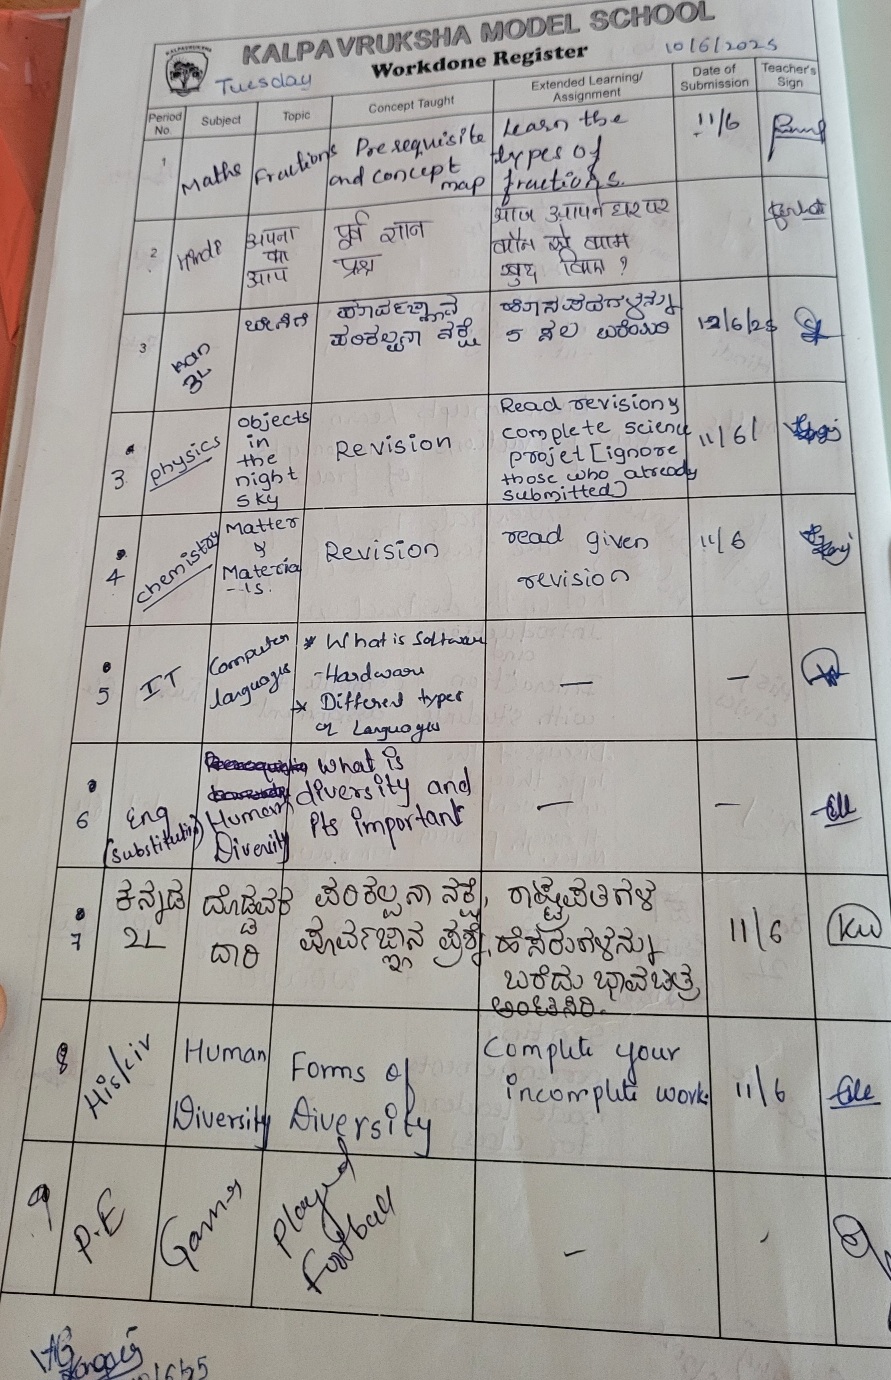 KALPAVRUKSHA MODEL SCHOOL
Workdone Register
Tuesday
10/6/2025
Period No.
Subject
Topic
Concept Taught
Extended Learning/ Assignment
Date of Submission
Teacher's Sign
1
Maths
Fractions
Prerequisite
and concept
map
Learn the
types of
fractions.
11/6
2
Hindi
अपना
का
आप
पूर्व ज्ञान
प्रश्न
आज आपने घर पर
कौन से काम
खुद किए ?
3
Kan
3L
ಪರಿಕಲ್ಪನಾ ನಕ್ಷೆ
5 ಸಲ ಬರೆಯಿರಿ
12/6/25
3
physics
objects
in
the
night
sky
Revision
Read revision &
complete science
projet [ignore
those who already
submitted]
11/6/
4
chemistry
Matter
&
Materia
-ls.
Revision
read given
revision
11/6
5
IT
Computer
languages
* What is Software
-Hardware
* Different types
of Languages
—
—
6
Eng
(substitution)
Human
Diversity
What is
diversity and
its important
—
—
7
ಕನ್ನಡ
2L
ದೊಡ್ಡವರ
ದಾರಿ
ಪರಿಕಲ್ಪನಾ ನಕ್ಷೆ,
ಪೂರ್ವಜ್ಞಾನ ಪ್ರಶ್ನೆ,
ರಾಷ್ಟ್ರಪತಿಗಳ
ಹೆಸರುಗಳನ್ನು
ಬರೆದು ಭಾವಚಿತ್ರ
ಅಂಟಿಸಿರಿ.
11/6
KW
8
His/civ
Human
Diversity
Forms of
Diversity
Complete your
incomplete work.
11/6
9
P.E
Games
Played
football
—